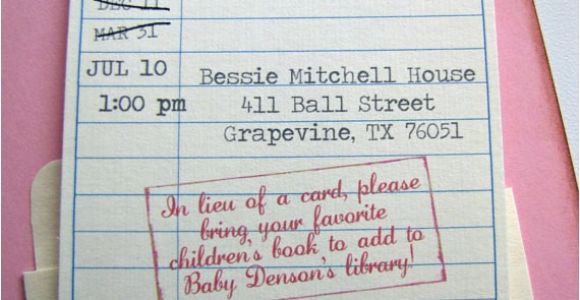 DEC 11
MAR 31
JUL 10
1:00 pm
Bessie Mitchell House
411 Ball Street
Grapevine, TX 76051
In lieu of a card, please
bring your favorite
children's book to add to
Baby Denson's library!